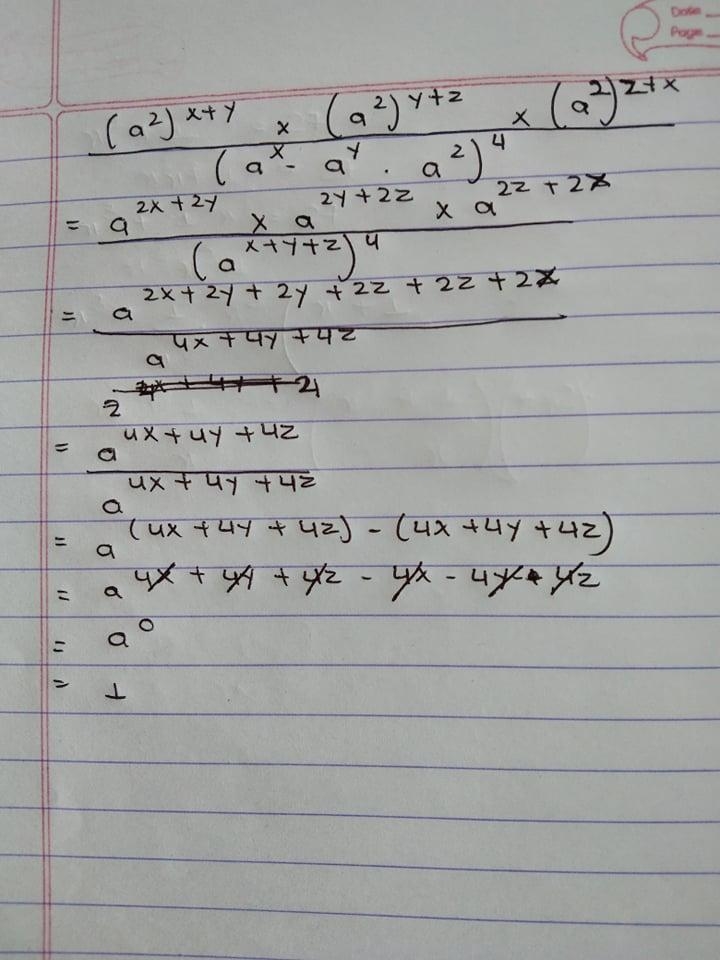 Date
Page
(a²)^x+y × (a²)^y+z × (a²)^z+x
(a^x - a^y . a²)^4
= a^2x+2y × a^2y+2z × a^2z+2x
(a^x+y+z)^4
= a^2x+2y+2y+2z+2z+2x
a^4x+4y+4z
= a^4x+4y+4z
a^4x+4y+4z
= a^(4x+4y+4z)-(4x+4y+4z)
= a^4x+4y+4z-4x-4y-4z
= a^0
= 1